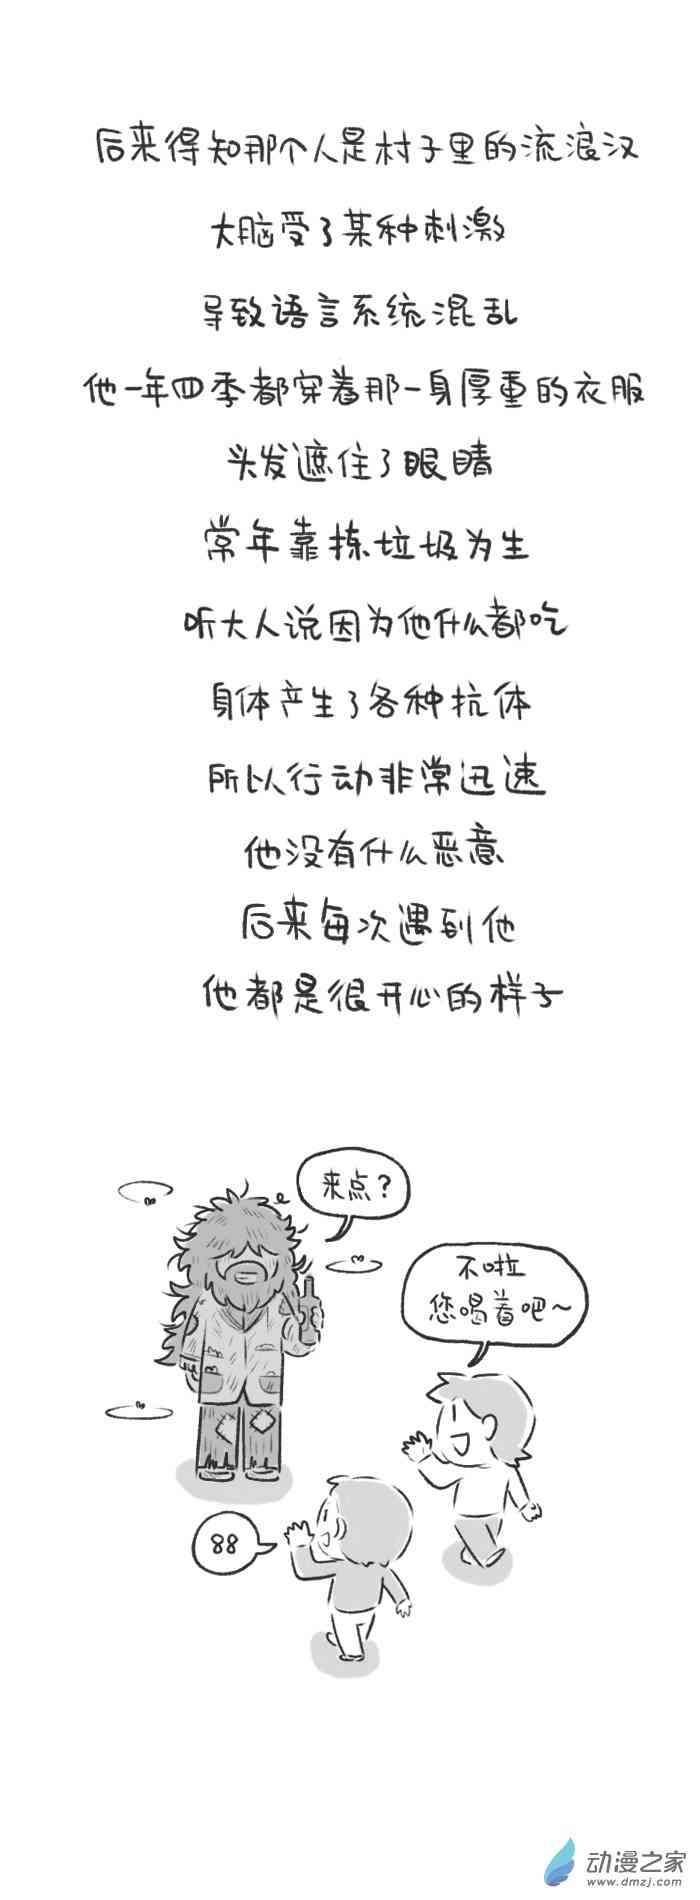 后来得知那个人是村子里的流浪汉
大脑受了某种刺激
导致语言系统混乱
他一年四季都穿着那一身厚重的衣服
头发遮住了眼睛
常年靠拣垃圾为生
听大人说因为他什么都吃
身体产生了各种抗体
所以行动非常迅速
他没有什么恶意
后来每次遇到他
他都是很开心的样子
来点？
不啦
您喝着吧~
88
动漫之家
www.dmzj.com